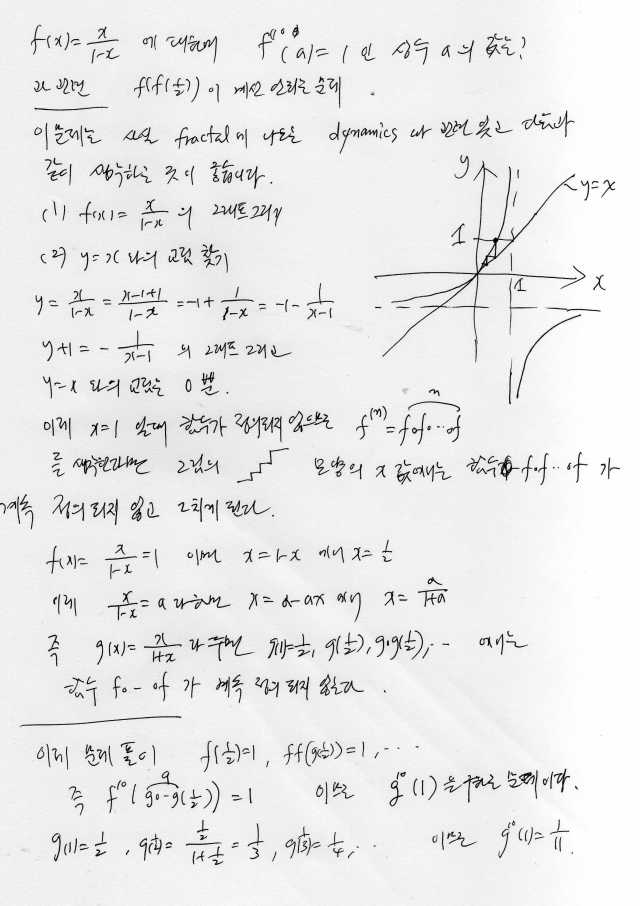 f(x)= x/(1-x) 에 대하여 f¹⁰(a)=1 인 상수 a의 값은?
과 관련 f(f(1/2)) 이 계산 안되는 문제.
이 문제는 사실 fractal에 나오는 dynamics 와 관련 있고 다음과
같이 생각하는 것이 좋습니다.
(1) f(x)= x/(1-x) 의 그래프 그리기
(2) y=x 와의 교점 찾기
y= x/(1-x) = (x-1+1)/(1-x) = -1+ 1/(1-x) = -1- 1/(x-1)
y+1= - 1/(x-1) 의 그래프 그리고
y=x 와의 교점은 0 뿐.
y
y=x
1
1
x
이제 x=1 일때 함수가 정의되지 않으므로 f⁽ⁿ⁾= fof o… of
n
를 생각한다면 그림의 모양의 x 값에서는 함수 fof…of 가
계속 정의되지 않고 그치게 된다.
f(x)= x/(1-x) =1 이면 x=1-x 에서 x= 1/2
이제 x/(1-x) = a 라하면 x=a-ax 에서 x= a/(1+a)
즉 g(x)= x/(1+x) 라 두면 g(1)=1/2, g(1/2), g∘g(1/2), … 에서는
함수 fo-of 가 계속 정의되지 않는다.
이제 문제 풀이 f(1/2)=1, ff(g(1/2))=1, …
9
즉 f¹⁰(go-g(1/2)) =1 이므로 g¹⁰(1) 을 구하는 문제이다.
g(1)= 1/2, g(1/2)= (1/2)/(1+1/2) = 1/3, g(1/3)= 1/4, … 이므로 g¹⁰(1)= 1/11.